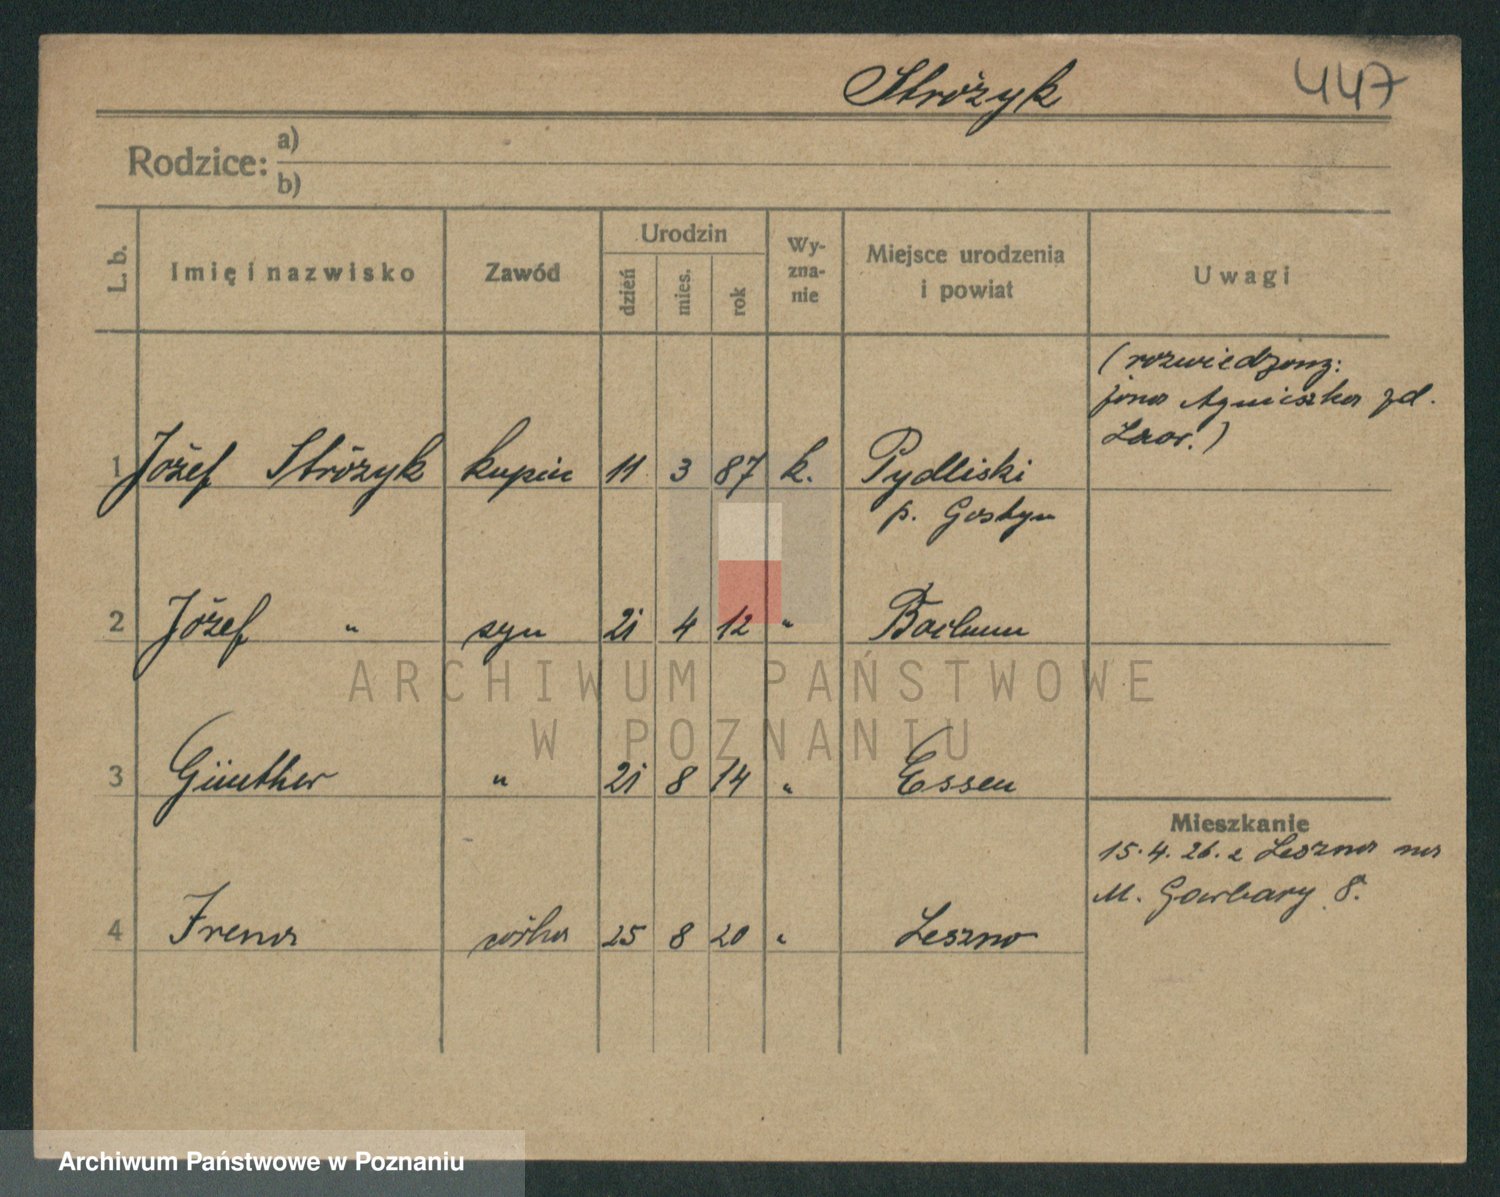 Stróżyk 447
Rodzice: a)
b)
L. b. Imię i nazwisko Zawód Urodzin dzień mies. rok Wy-zna-nie Miejsce urodzenia i powiat Uwagi
(rozwiedzony:
żona Agnieszka zd.
1 Józef Stróżyk kupiec 11 3 87 k.
p. Gostyn
2 Józef " syn 21 4 12 " Bochum
3 Günther " 21 8 14 " Essen
Mieszkanie
15.4.26. z Leszna na
M. Garbary 8.
4 Irena córka 25 8 20 " Leszno
ARCHIWUM PAŃSTWOWE
W POZNANIU
Archiwum Państwowe w Poznaniu